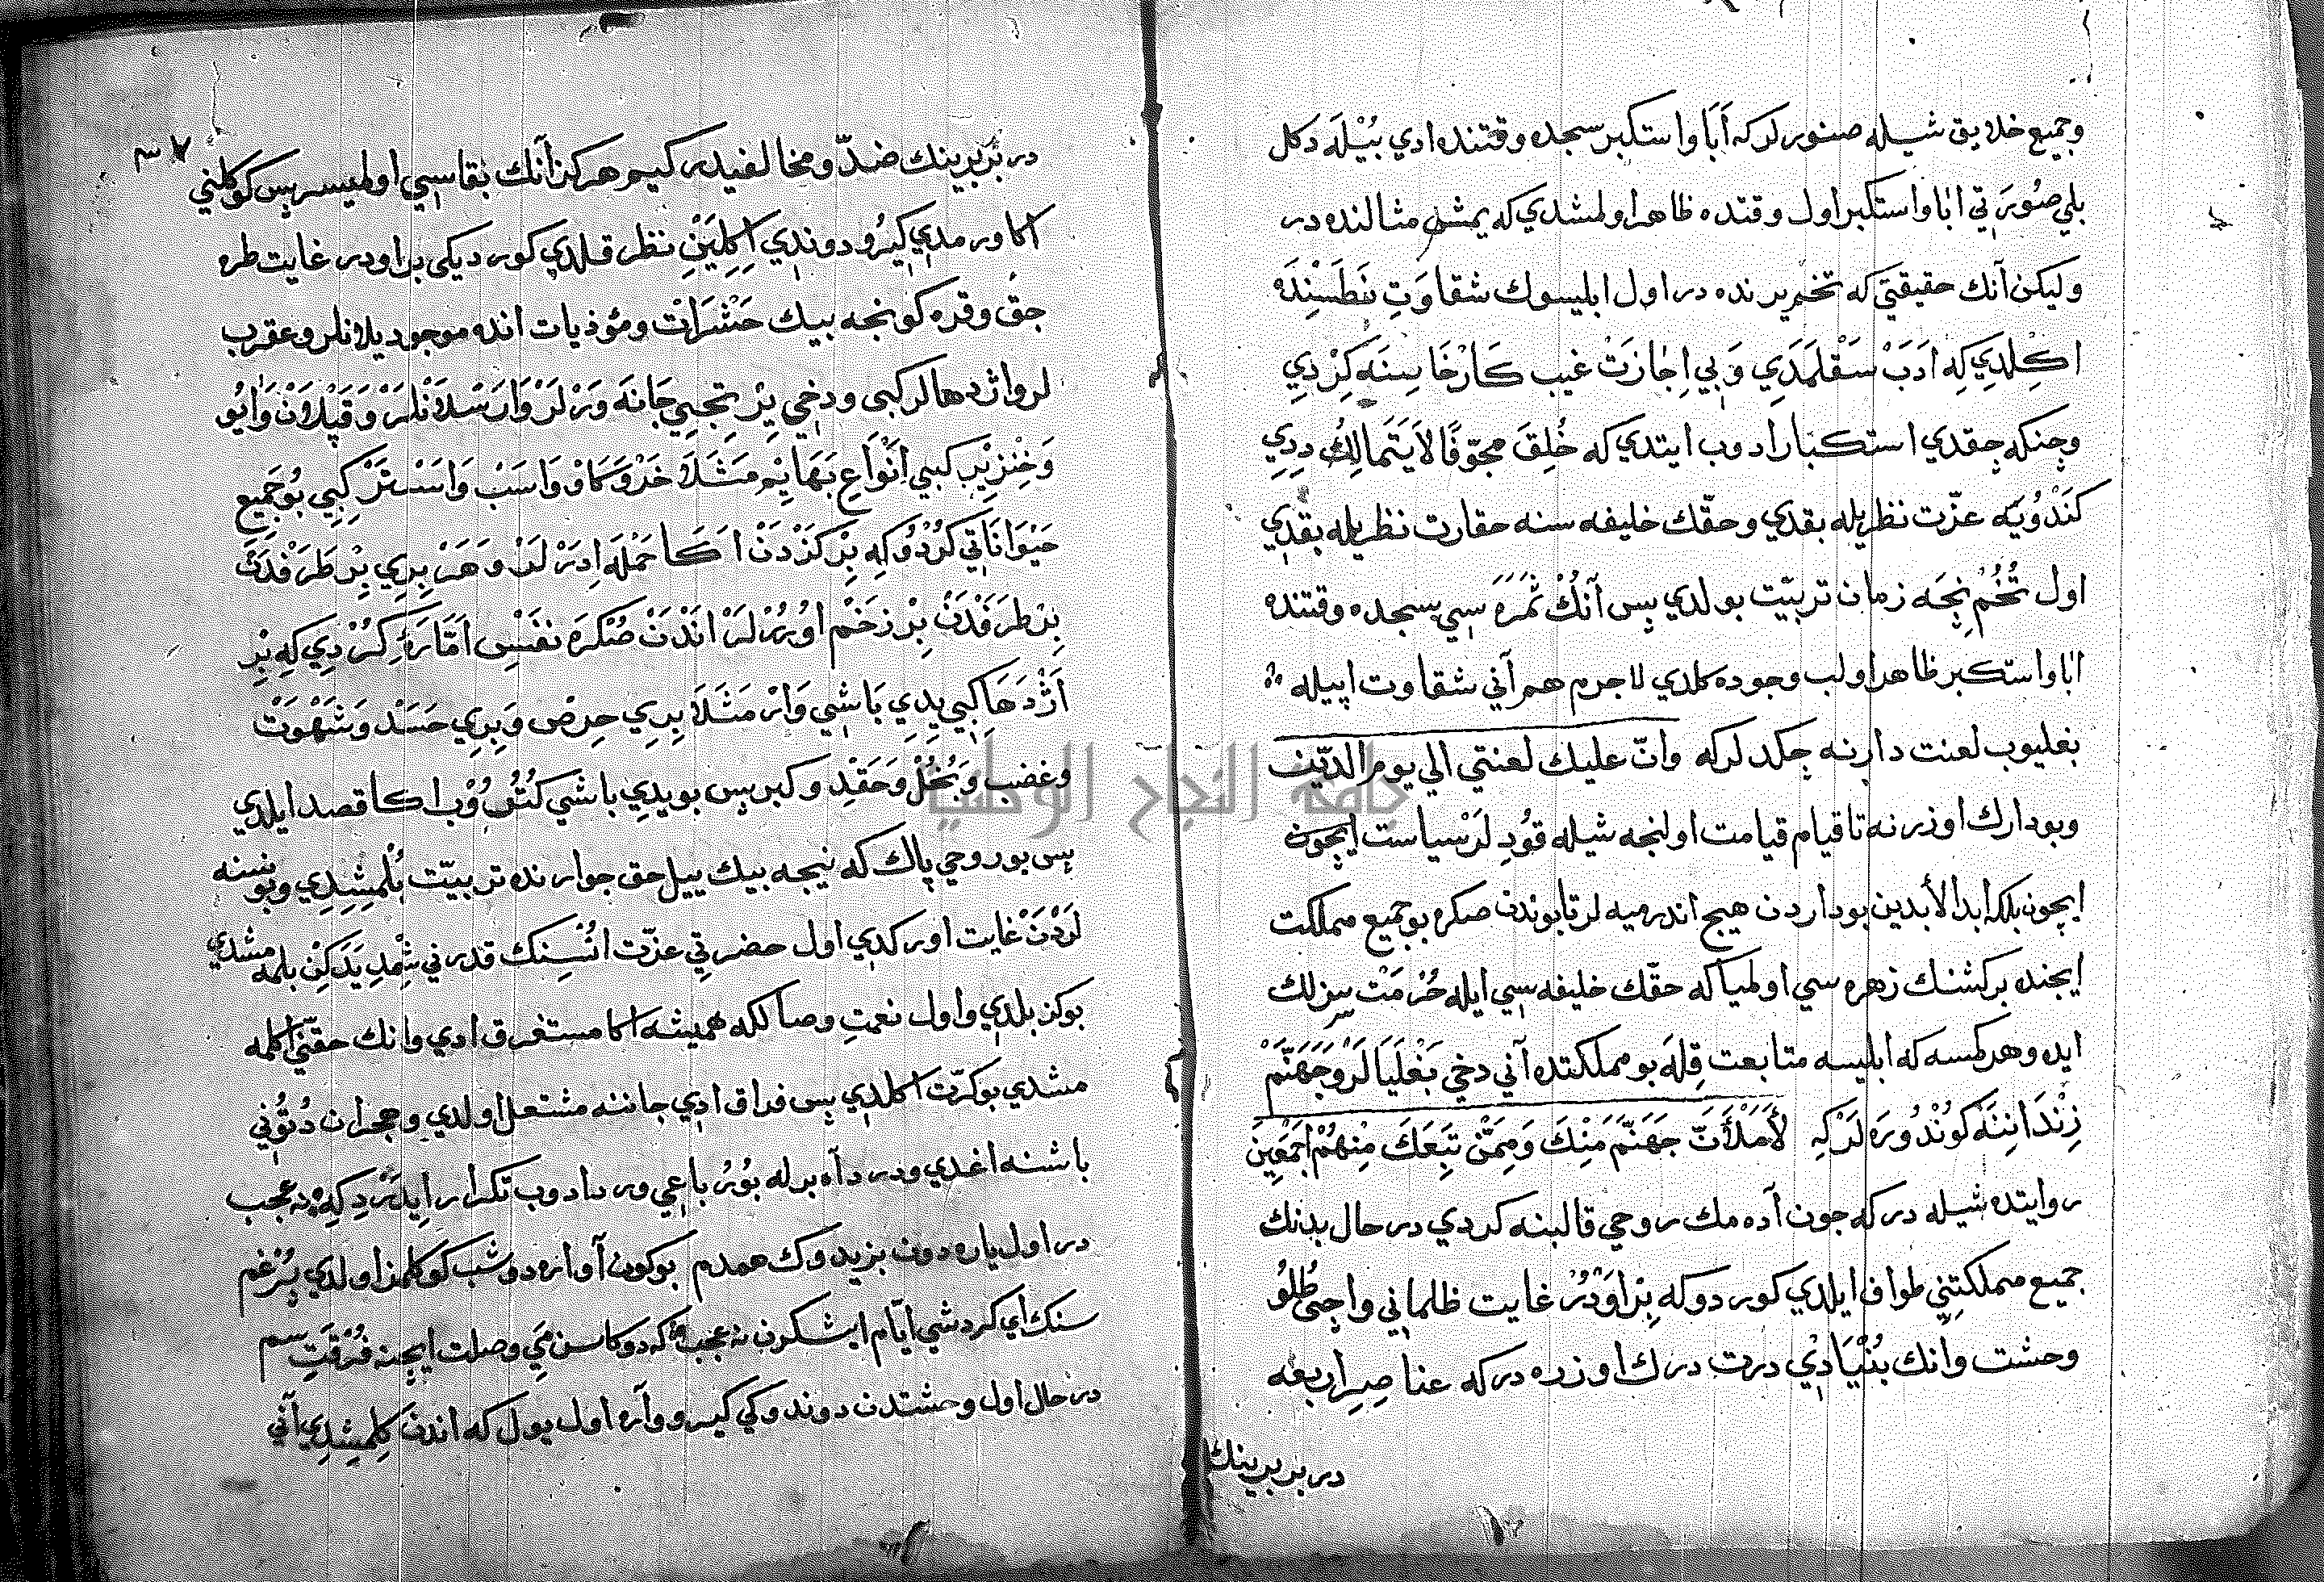 وجميع خلايق شيله صنورلركه أَبَا واستكبر سجده وقتنده ادي بُيْلَه دكل
بلي صُورَتي ابا واستكبر اول وقتده ظاهر اولمشدي كه يمشى مثالنده در
وليكن آنك حقيقتي كه تخم يرنده در اول ابليسوك شقاوَتِ نَطَسِنْدَه
اكِلدي كِه ادَبْ سَقْلَمَدَي وَبي اِجازَتْ غيب كَارْخَاسِنَه كِرْدي
وچنكه چقدي استكبار ادوب ايتدي كه خُلِقَ مجوّفًا لاَ يَتَمَالِكُ دِدِي
كَنْدُويَه عزّت نظريله بقدي وحقّك خليفه سنه حقارت نظريله بقدي
اول تُخُمْ نِجَه زمان تربيّت بولدي پس آنُكْ ثَمَرَه سي سجده وقتنده
ابا واستكبر ظاهر اولب وجوده كلدي لا جرم هم آني شقاوت ايپيله
بغليوب لعنت دارنه چكدلركه وانّ عليك لعنتي الي يوم الدّين
وبودارك اوزرنه تا قيام قيامت اولنجه شيله قوُدِلَرْ سياست ايچون
ايچون بلكه ابد الأبدين بودارдن هيچ اندرميه لر تا بوندن صكره بوجميع مملكت
ايچنده بركشنك زهره سي اولميا كه حقّك خليفه سي ايله حُرْمَتْ سِزلك
ايده وهركمسه كه ابليسه متابعت قِلَه بومملكتده آني دخي بَغْلَيَالَرْ وجَهَنَّمْ
زِنْدَانِنَه كُونْدُورَه لَرْكِه لأَمْلأَنَّ جَهَنَّمَ مِنْكَ وَمِمَّنْ تَبِعَكَ مِنْهُمْ أجْمَعِينَ
روايتده شيله دركه چون آده مك روحي قالبنه كردي در حال بدنك
جميع مملكتني طواف ايلدي كوردوكه بِرْ اَوْدُرْ غايت ظلماني واچي طُلُو
وحشت وآنك بُنْيَادي درت درك اوزره دركه عناصِرِ اربعه
در بر برينك
در بَرْبرينك ضدّ ومخالفيدر كيم هركز آنك بقاسي اولميسر پس كوكلني
اكا ورمدي كيرُو دوندي اِكِلَيَنْ نظر قلدي كورديكي بر اودر غايت طره
جق وقره كونجه بيك حَشَرَاتْ ومؤذيات انده موجود يلانلر وعقرب
لر واژدهالر كبى ودخي بِرْ تَجِبِي جَانَه وَرْلَرْ وَارَسْلاَنْلَرْ وَقَپْلاَونْ وَايُو
وَخِنْزِيْر كبي انْوَاعِ بَهَايِمْ مَثَلاً خَرْ وَكَاوْ وَاسَبْ وَاسَتَرْ كِبِي بُوجَمِيع
حَيْوَانَاتي كُرْدُوكِه بِرْ كَزْدَنْ اكَا حَمْلَه اِدَرْلَرْ وَهَرْ بِرِي بِرْ طَرَفْدَنْ
بِرْ طَرَفْدَنْ بِرْ زَخَمْ اوُرُرْلَرْ انْدَنْ صُكْرَه نَفْسِ اَمَّارَه كُرْدِي كِه بِرْ
اَژْدَهَا كِبِي يدِي بَاشِي وَارْ مَثَلاَ بِرِي حِرْص وَبِرِي حَسَدْ وَشَهْوَتْ
وغضب وَبُخُلْ وَحَقْدِ وكبر پس بويدي باشي كُتُرُوْب اكا قصد ايلدي
پس بوروحي پاك كه نيجه بيك ييل حق جوارنده تربيّت بُلْمِشِدِي وبو نسنه
لَرْدَنْ غايت اوركدي اول حضرتي عزّت اُنْسِنِك قدرني شِمْدِيَدَكِنْ بلمه مشدي
بوكز بلدي واول نعمتِ وصالكه هميشه اكا مستغرق ادي وانك حقّنى اكلمه
مشدي بوكرّت اكلدي پس فراق ادي جاننه مشتعل اولدي وهجران دُتُوُني
باشنه اغدي ودرد آه بر له بُوُر باعي ورد ادوب تكرار ايدَرْدِ كِه نه عجب
در اول ياره دون بزيدوك همدم بوكون آواره دوشب كوكلمز اولدي پُرْغم
سنك اي كردشي ايّام ايشكرن نه عجب كه دوكاسن مَي وصلت ايچنه فُرْقَتِ سم
در حال اول وحشتدن دوندوكي كيرو وآره اول يول كه اندن كِلمِشِدِي آني